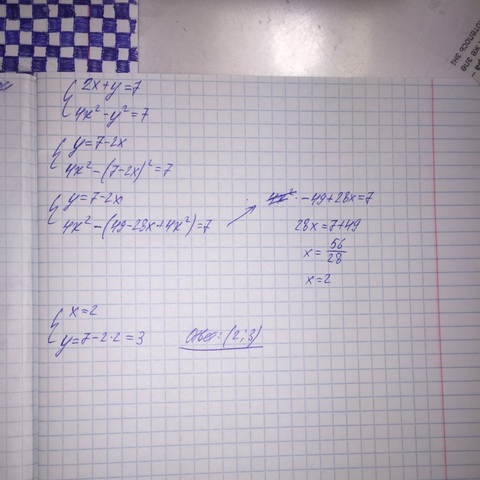 2x+y=7
4x²-y²=7
y=7-2x
4x²-(7-2x)²=7
y=7-2x
4x²-(49-28x+4x²)=7
-49+28x=7
28x=7+49
x=56/28
x=2
x=2
y=7-2·2=3
Ответ: (2;3)